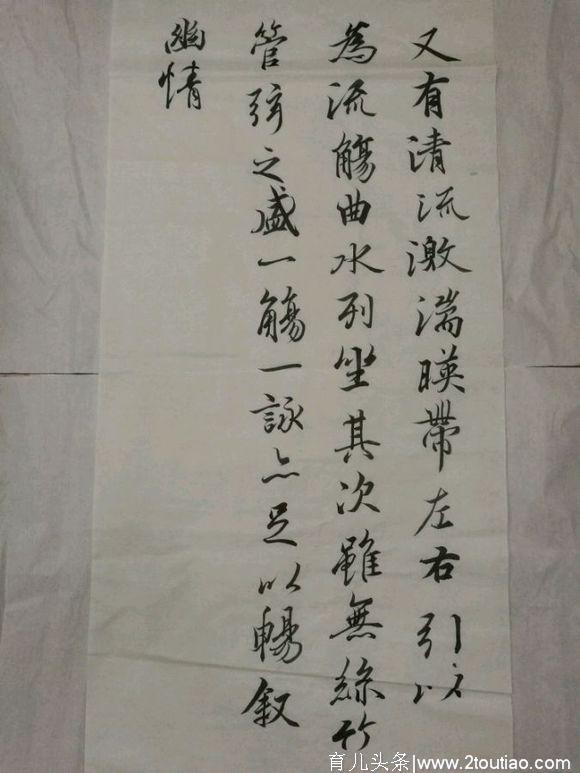 又有清流激湍暎帶左右引以
為流觴曲水列坐其次雖無絲竹
管弦之盛一觴一詠亦足以暢叙
幽情
育儿头条@www.2toutiao.com